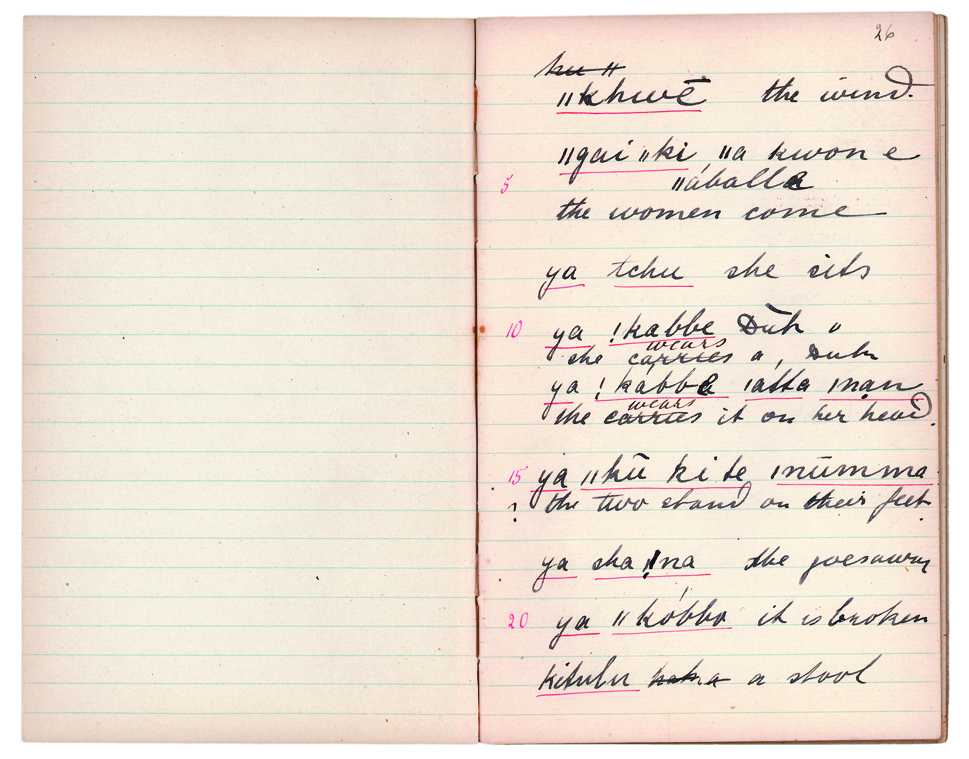 26
ku ǁ
ǁkhwē the wind.
ǁgai ǁki, ǁa kwon e
5 ǁáballa
the women come
ya tchu she sits
10 ya !kabbe Duk
wears
she carries a, Duk
ya !kabbe ǀatta ǀnan
wears
the carries it on her head.
15 ya ǁkū ki te ǀnūmma
? the two stand on their feet
ya sha ǁna she goes away
20 ya ǁkóbba it is broken
kitulu a stool